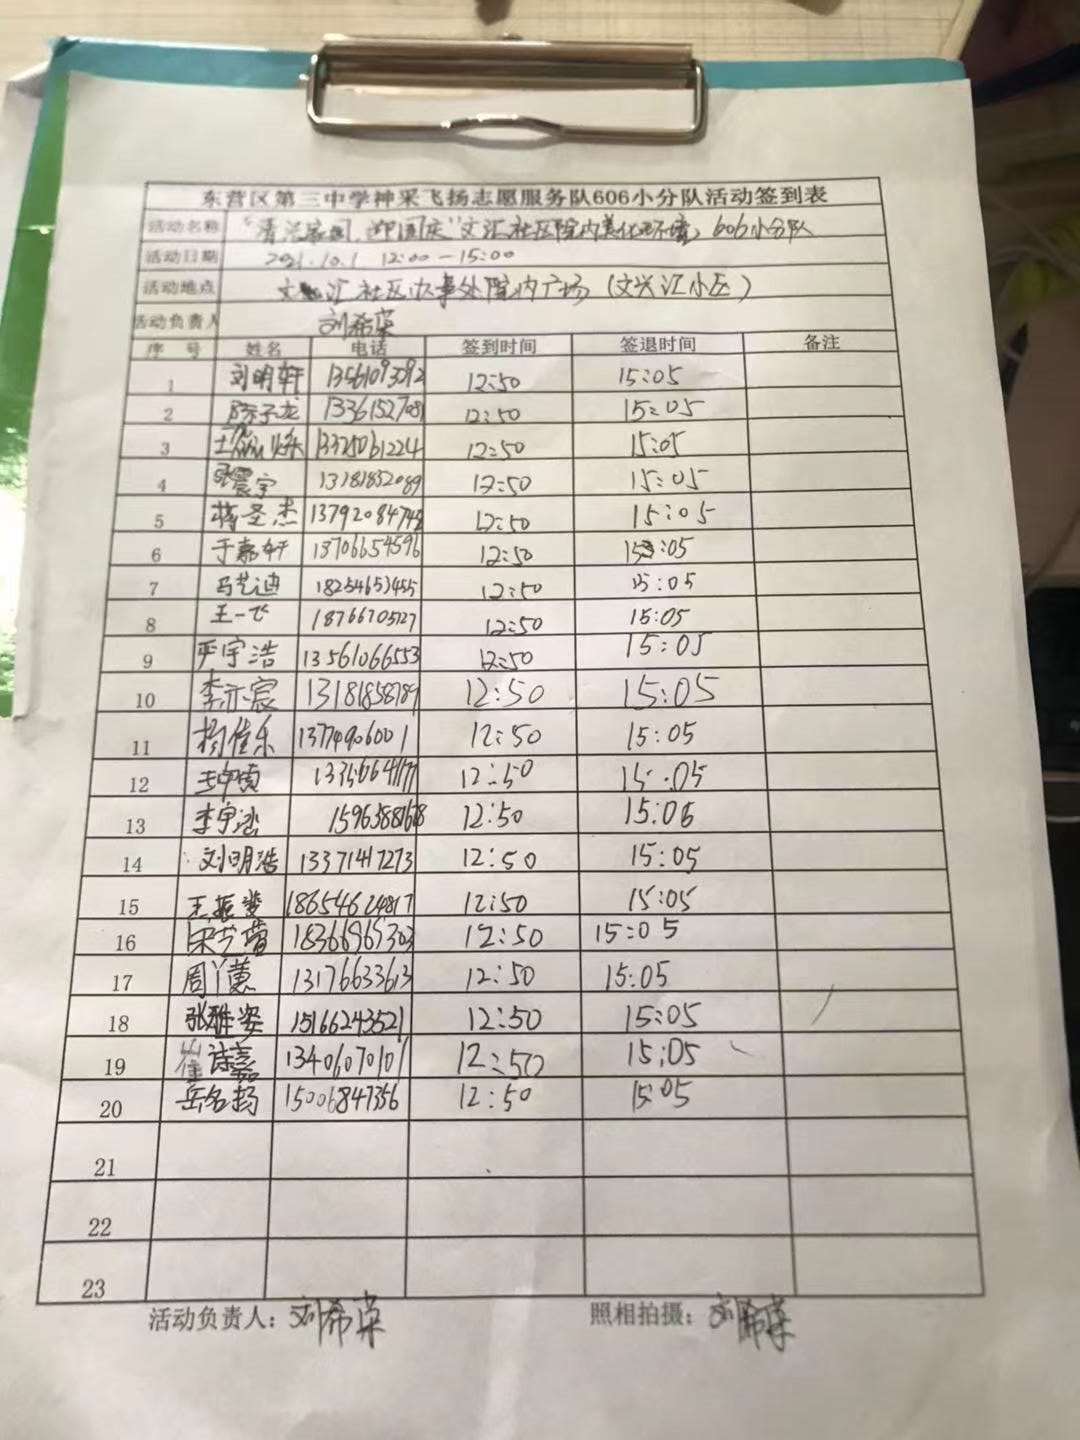 东营区第三中学神采飞扬志愿服务队606小分队活动签到表
活动名称 "清洁家园,迎国庆"文汇社区院内美化环境,606小分队
活动日期 2021.10.1 12:00-15:00
活动地点 文汇社区办事处院内广场(文兴汇小区)
活动负责人 刘希荣
序号 姓名 电话 签到时间 签退时间 备注
1 刘明轩 13561093092 12:50 15:05
2 陈子龙 13361527081 12:50 15:05
3 13325061224 12:50 15:05
4 张震宇 13181832089 12:50 15:05
5 蒋圣杰 13792084748 12:50 15:05
6 于嘉轩 13706654596 12:50 15:05
7 马艺迪 18254653455 12:50 15:05
8 王一飞 18766705727 12:50 15:05
9 严宇浩 13561066553 12:50 15:05
10 李亦宸 13181858789 12:50 15:05
11 杨佳乐 13774906001 12:50 15:05
12 12:50 15:05
13 李宇涵 12:50 15:05
14 刘明浩 13371417273 12:50 15:05
15 18654624817 12:50 15:05
16 宋艺蕾 18366965303 12:50 15:05
17 周丫蕙 13176633613 12:50 15:05
18 张雅姿 15166243521 12:50 15:05
19 崔诗嘉 13406070101 12:50 15:05
20 岳名扬 15006847356 12:50 15:05
21
22
23
活动负责人:刘希荣 照相拍摄:刘希荣